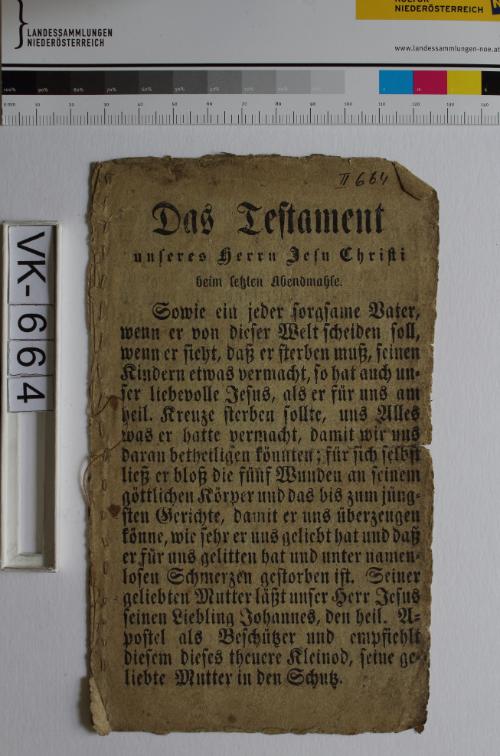 LANDESSAMMLUNGEN
NIEDERÖSTERREICH
KULTUR
NIEDERÖSTERREICH
www.landessammlungen-noe.at
VK-664
II 664
Das Testament
unseres Herrn Jesu Christi
beim letzten Abendmahle.
Sowie ein jeder sorgsame Vater,
wenn er von dieser Welt scheiden soll,
wenn er sieht, daß er sterben muß, seinen
Kindern etwas vermacht, so hat auch un-
ser liebevolle Jesus, als er für uns am
heil. Kreuze sterben sollte, uns Alles
was er hatte vermacht, damit wir uns
daran betheiligen könnten; für sich selbst
ließ er bloß die fünf Wunden an seinem
göttlichen Körper und das bis zum jüng-
sten Gerichte, damit er uns überzeugen
könne, wie sehr er uns geliebt hat und daß
er für uns gelitten hat und unter namen-
losen Schmerzen gestorben ist. Seiner
geliebten Mutter läßt unser Herr Jesus
seinen Liebling Johannes, den heil. A-
postel als Beschützer und empfiehlt
diesem dieses theuere Kleinod, seine ge-
liebte Mutter in den Schutz.